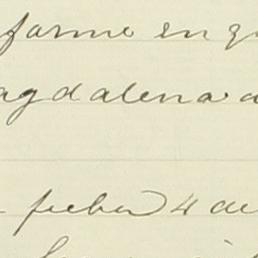 forme en q
agdalena a
fecha 4 de